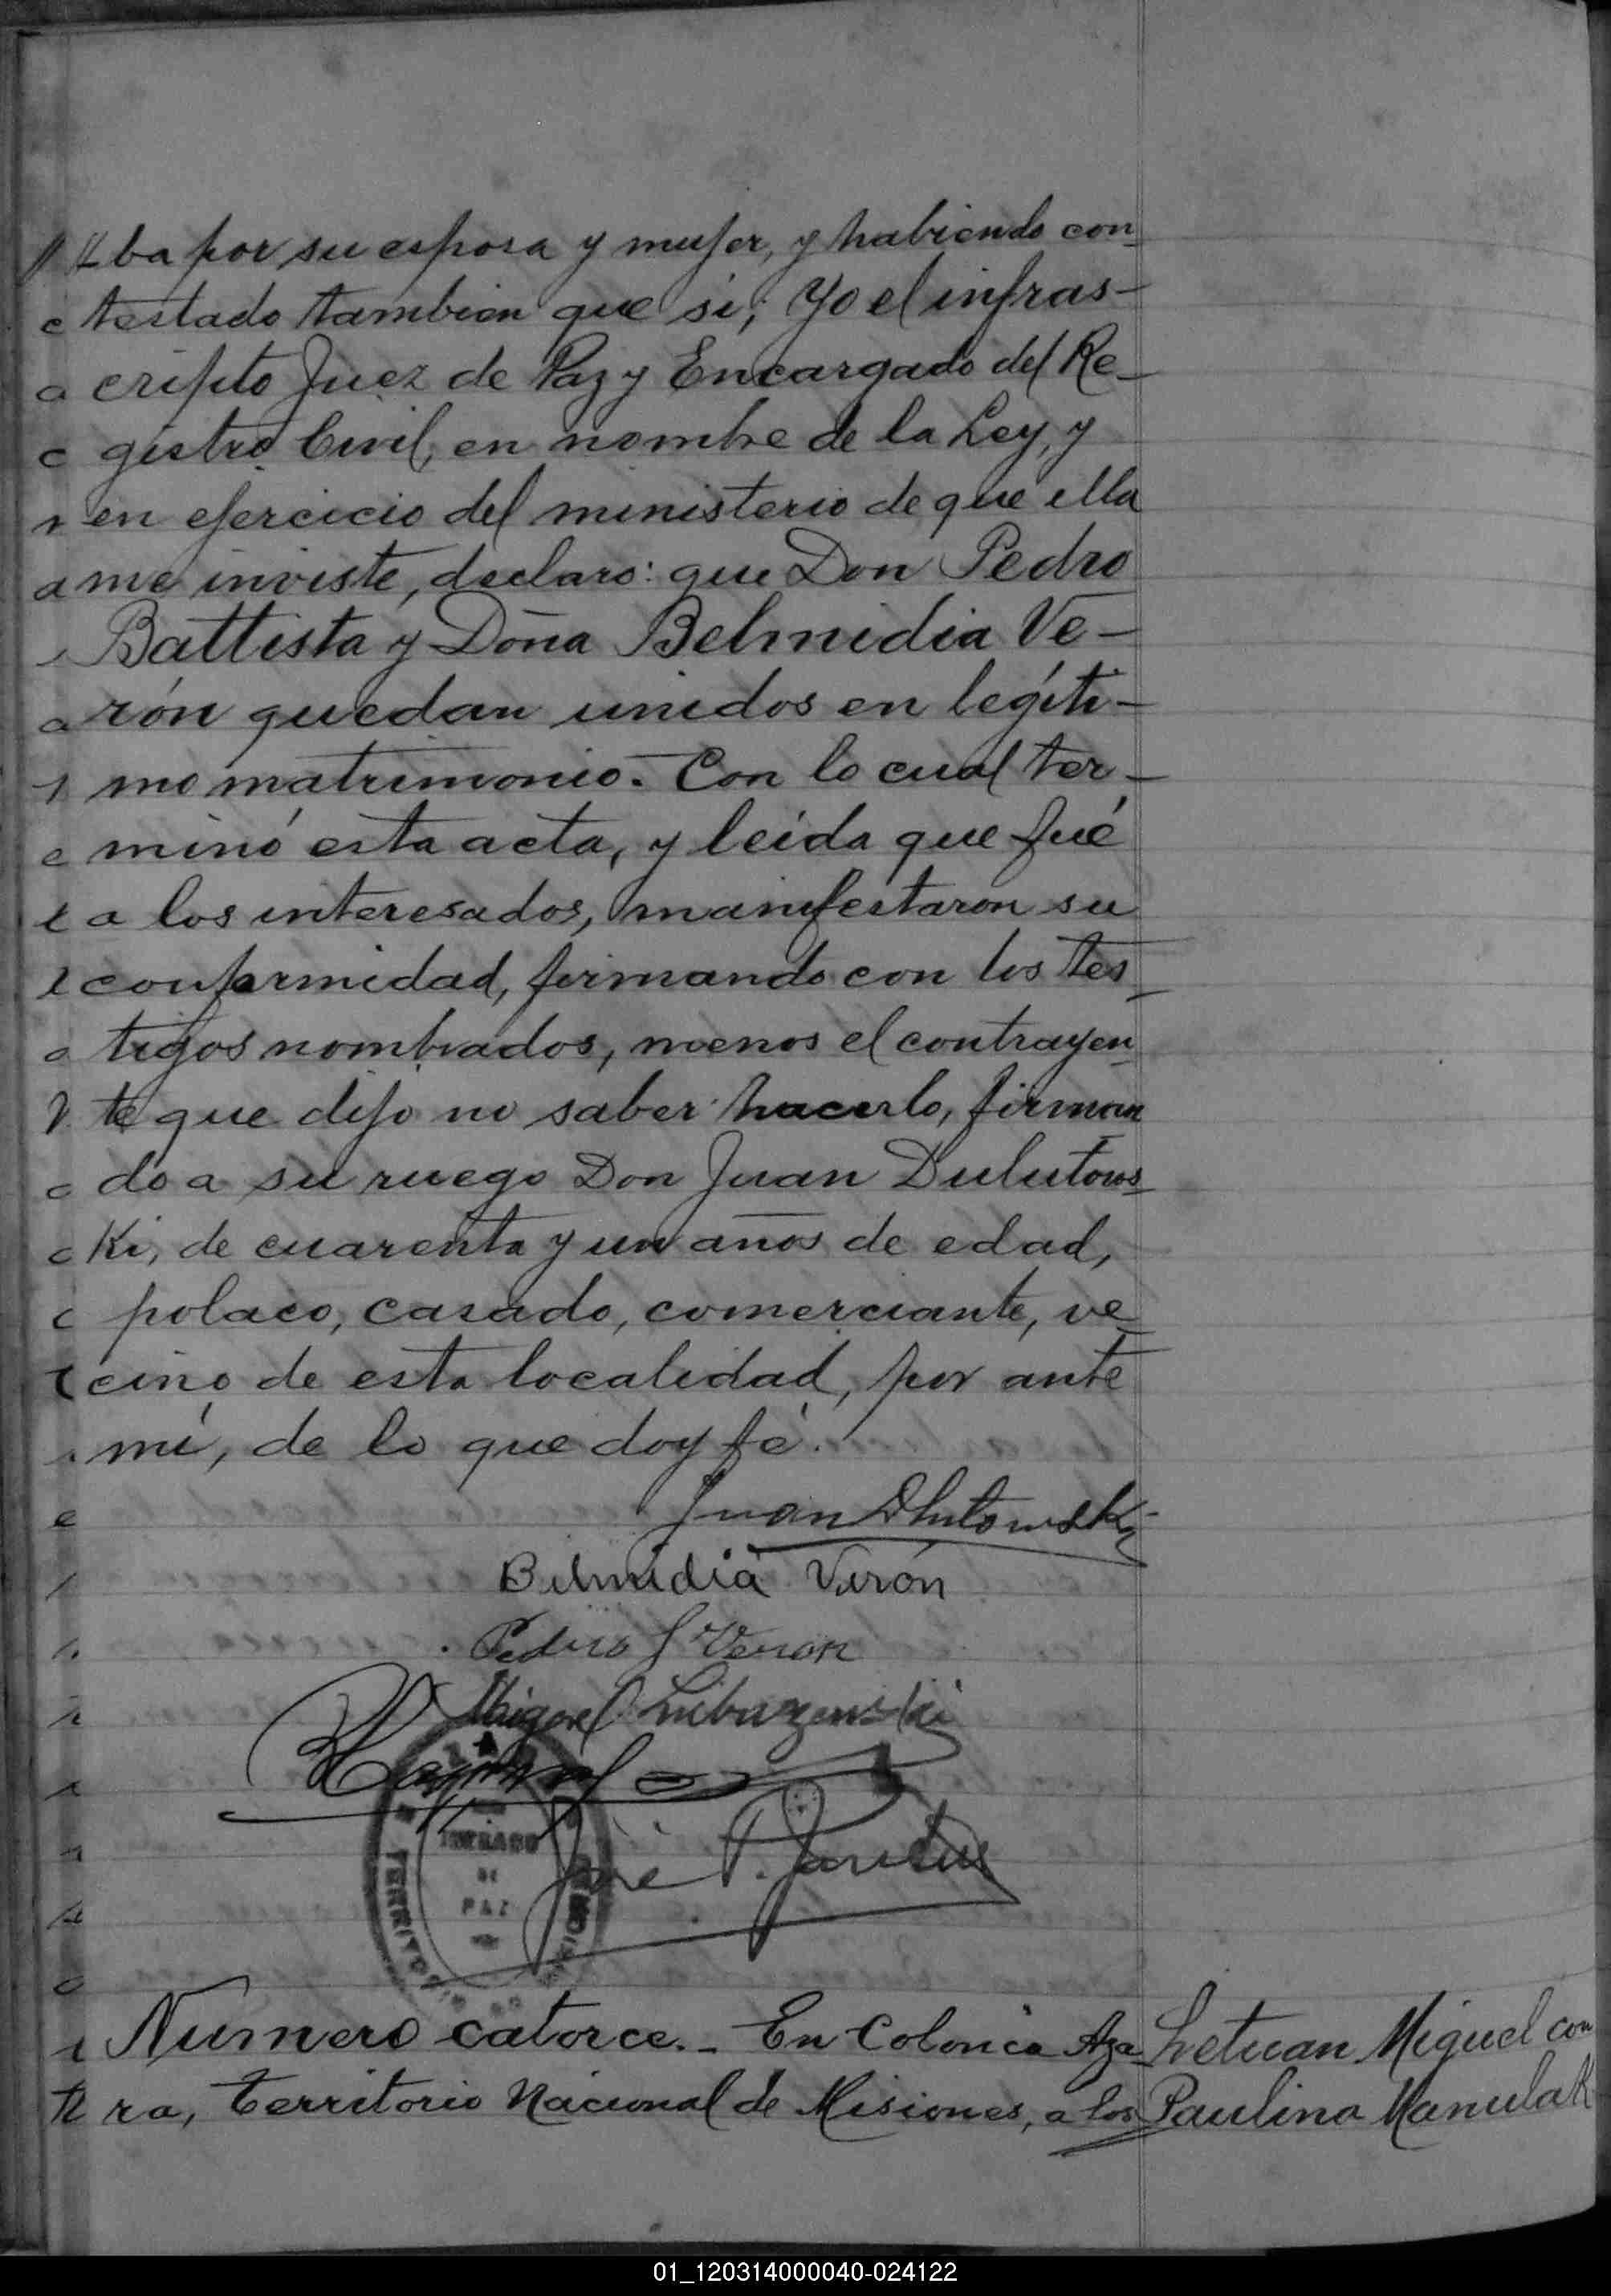 ba por su esposa y mujer, y habiendo con-
testado tambien que si; Yo el infras-
cripto Juez de Paz y Encargado del Re-
gistro Civil, en nombre de la Ley, y
en ejercicio del ministerio de que ella
me inviste, declaro: que Don Pedro
Battista y Doña Belmidia Ve-
rón quedan unidos en legíti-
mo matrimonio. Con lo cual ter-
minó esta acta, y leída que fué
a los interesados, manifestaron su
conformidad, firmando con los tes-
tigos nombrados, menos el contrayen-
te que dijo no saber hacerlo, firman
do a su ruego Don Juan Dulutows-
Ki, de cuarenta y un años de edad,
polaco, casado, comerciante, ve-
cino de esta localidad, por ante
mí, de lo que doy fé.
Juan
Belmidia Verón
Pedro Veron
Miguel
JUZGADO
DE
PAZ
TERRITORIO
José
Número catorce.- En Colonia Aza
ra, Territorio Nacional de Misiones, a los
Miguel con
Paulina Manulak
01_120314000040-024122